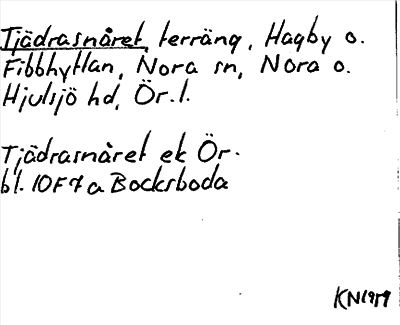 Tjädrasnåret, terräng, Hagby o.
Fibbhyttan, Nora sn, Nora o.
Hjulsjö hd, Ör. l.
Tjädrasnåret ek Ör.
bl. 10F7a Bocksboda
KN1979